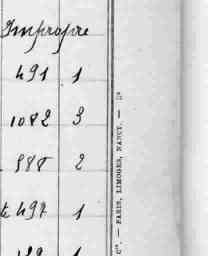 Impropre
491 1
1082 3
588 2
497 1
1
Cie. — PARIS, LIMOGES, NANCY. —